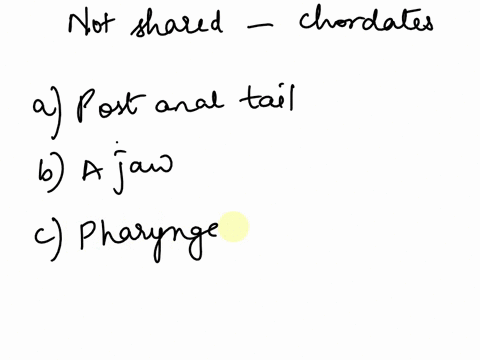 Not shared - chordates
a) Post anal tail
b) A jaw
c) Pharynge